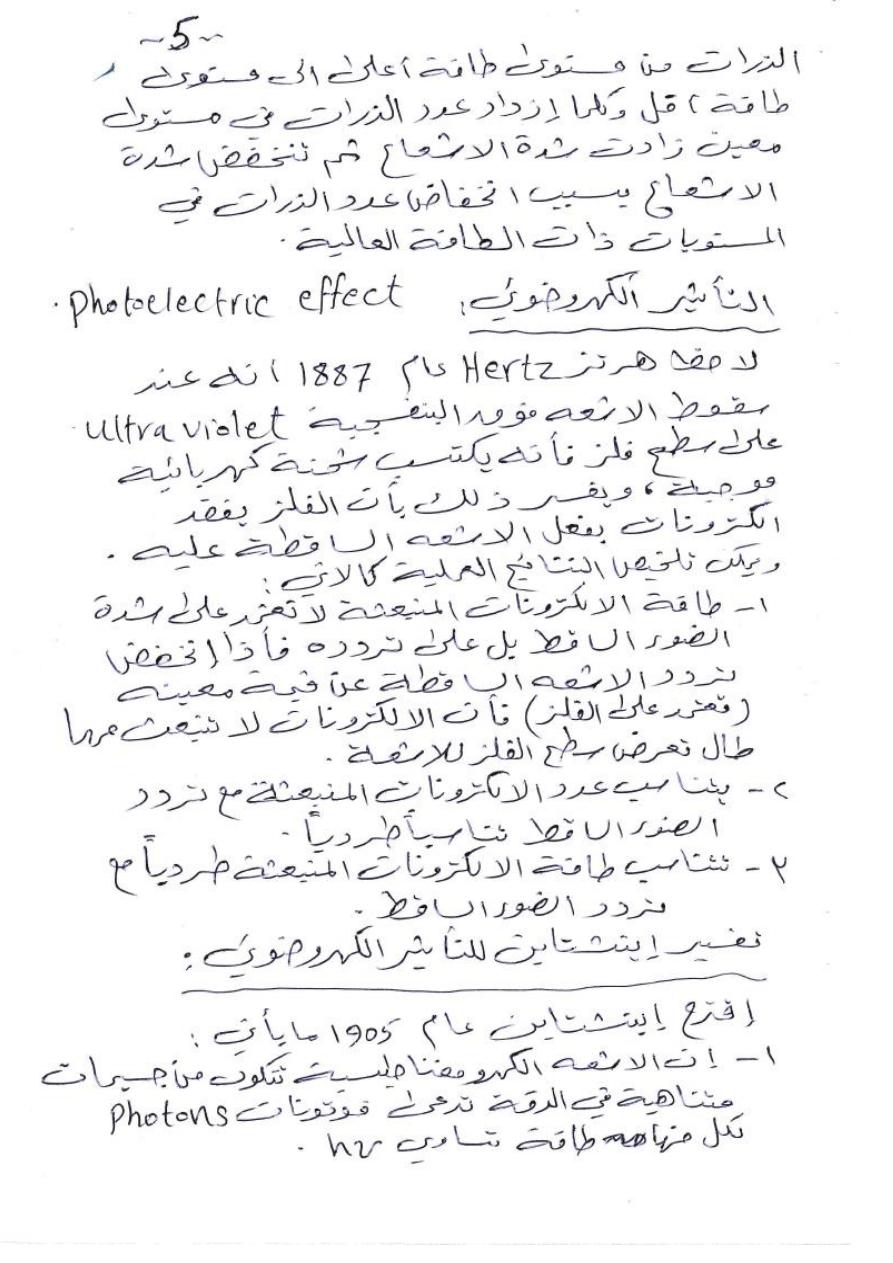 ~5~
الذرات من مستوى طاقة أعلى الى مستوى
طاقة اقل وكلما إزداد عدد الذرات في مستوى
معين زادت شدة الاشعاع ثم تنخفض شدة
الاشعاع بسبب انخفاض عدد الذرات في
المستويات ذات الطاقة العالية .
التأثير الكهروضوئي: Photoelectric effect .
لاحظ هرتز Hertz عام 1887 انه عند
سقوط الاشعه فوق البنفسجية Ultra violet
على سطح فلز فأنه يكتسب شحنة كهربائية
موجبة ، ويفسر ذلك بأن الفلز يفقد
الكترونات بفعل الاشعه الساقطة عليه .
ويمكن تلخيص النتائج العملية كالاتي :
١- طاقة الالكترونات المنبعثة لا تعتمد على شدة
الضوء الساقط بل على تردده فأذا إنخفض
تردد الاشعه الساقطة عن قيمة معينه
(تعتمد على الفلز) فأن الالكترونات لا تنبعث مهما
طال تعرض سطح الفلز للاشعة .
٢- يتناسب عدد الالكترونات المنبعثة مع تردد
الضوء الساقط تناسباً طردياً .
٣- تتناسب طاقة الالكترونات المنبعثة طردياً مع
تردد الضوء الساقط .
تفسير إينشتاين للتأثير الكهروضوئي :
إقترح إينشتاين عام 1905 مايأتي :
١- إن الاشعه الكهرومغناطيسية تتكون من جسيمات
متناهية في الدقة تدعى فوتونات Photons
لكل منها طاقة تساوي hν .